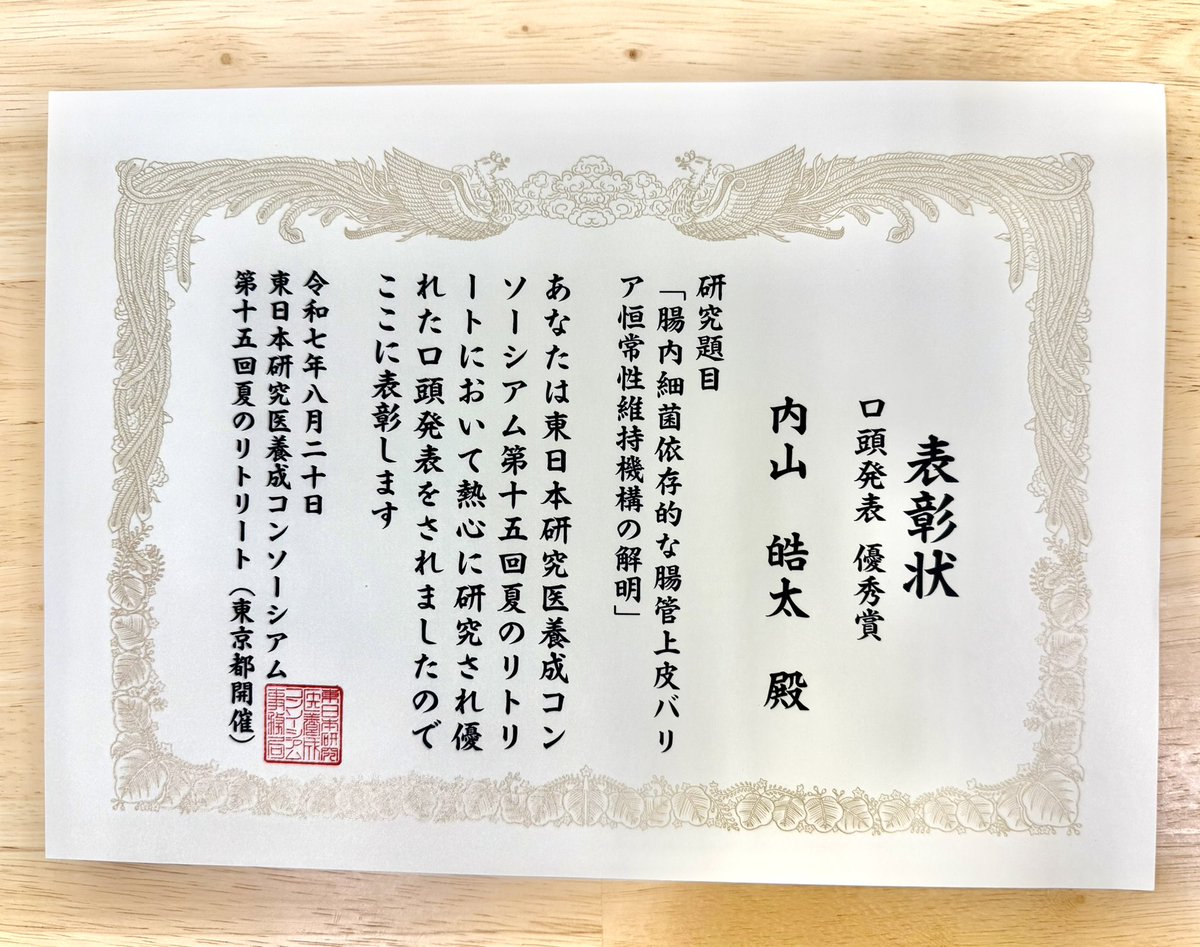 表彰状
口頭発表 優秀賞
内山 皓太 殿
研究題目
「腸内細菌依存的な腸管上皮バリ
ア恒常性維持機構の解明」
あなたは東日本研究医養成コン
ソーシアム第十五回夏のリトリ
ートにおいて熱心に研究され優
れた口頭発表をされましたので
ここに表彰します
令和七年八月二十日
東日本研究医養成コンソーシアム
第十五回夏のリトリート（東京都開催）
東日本研究
医養成
コンソーシアム
事務局